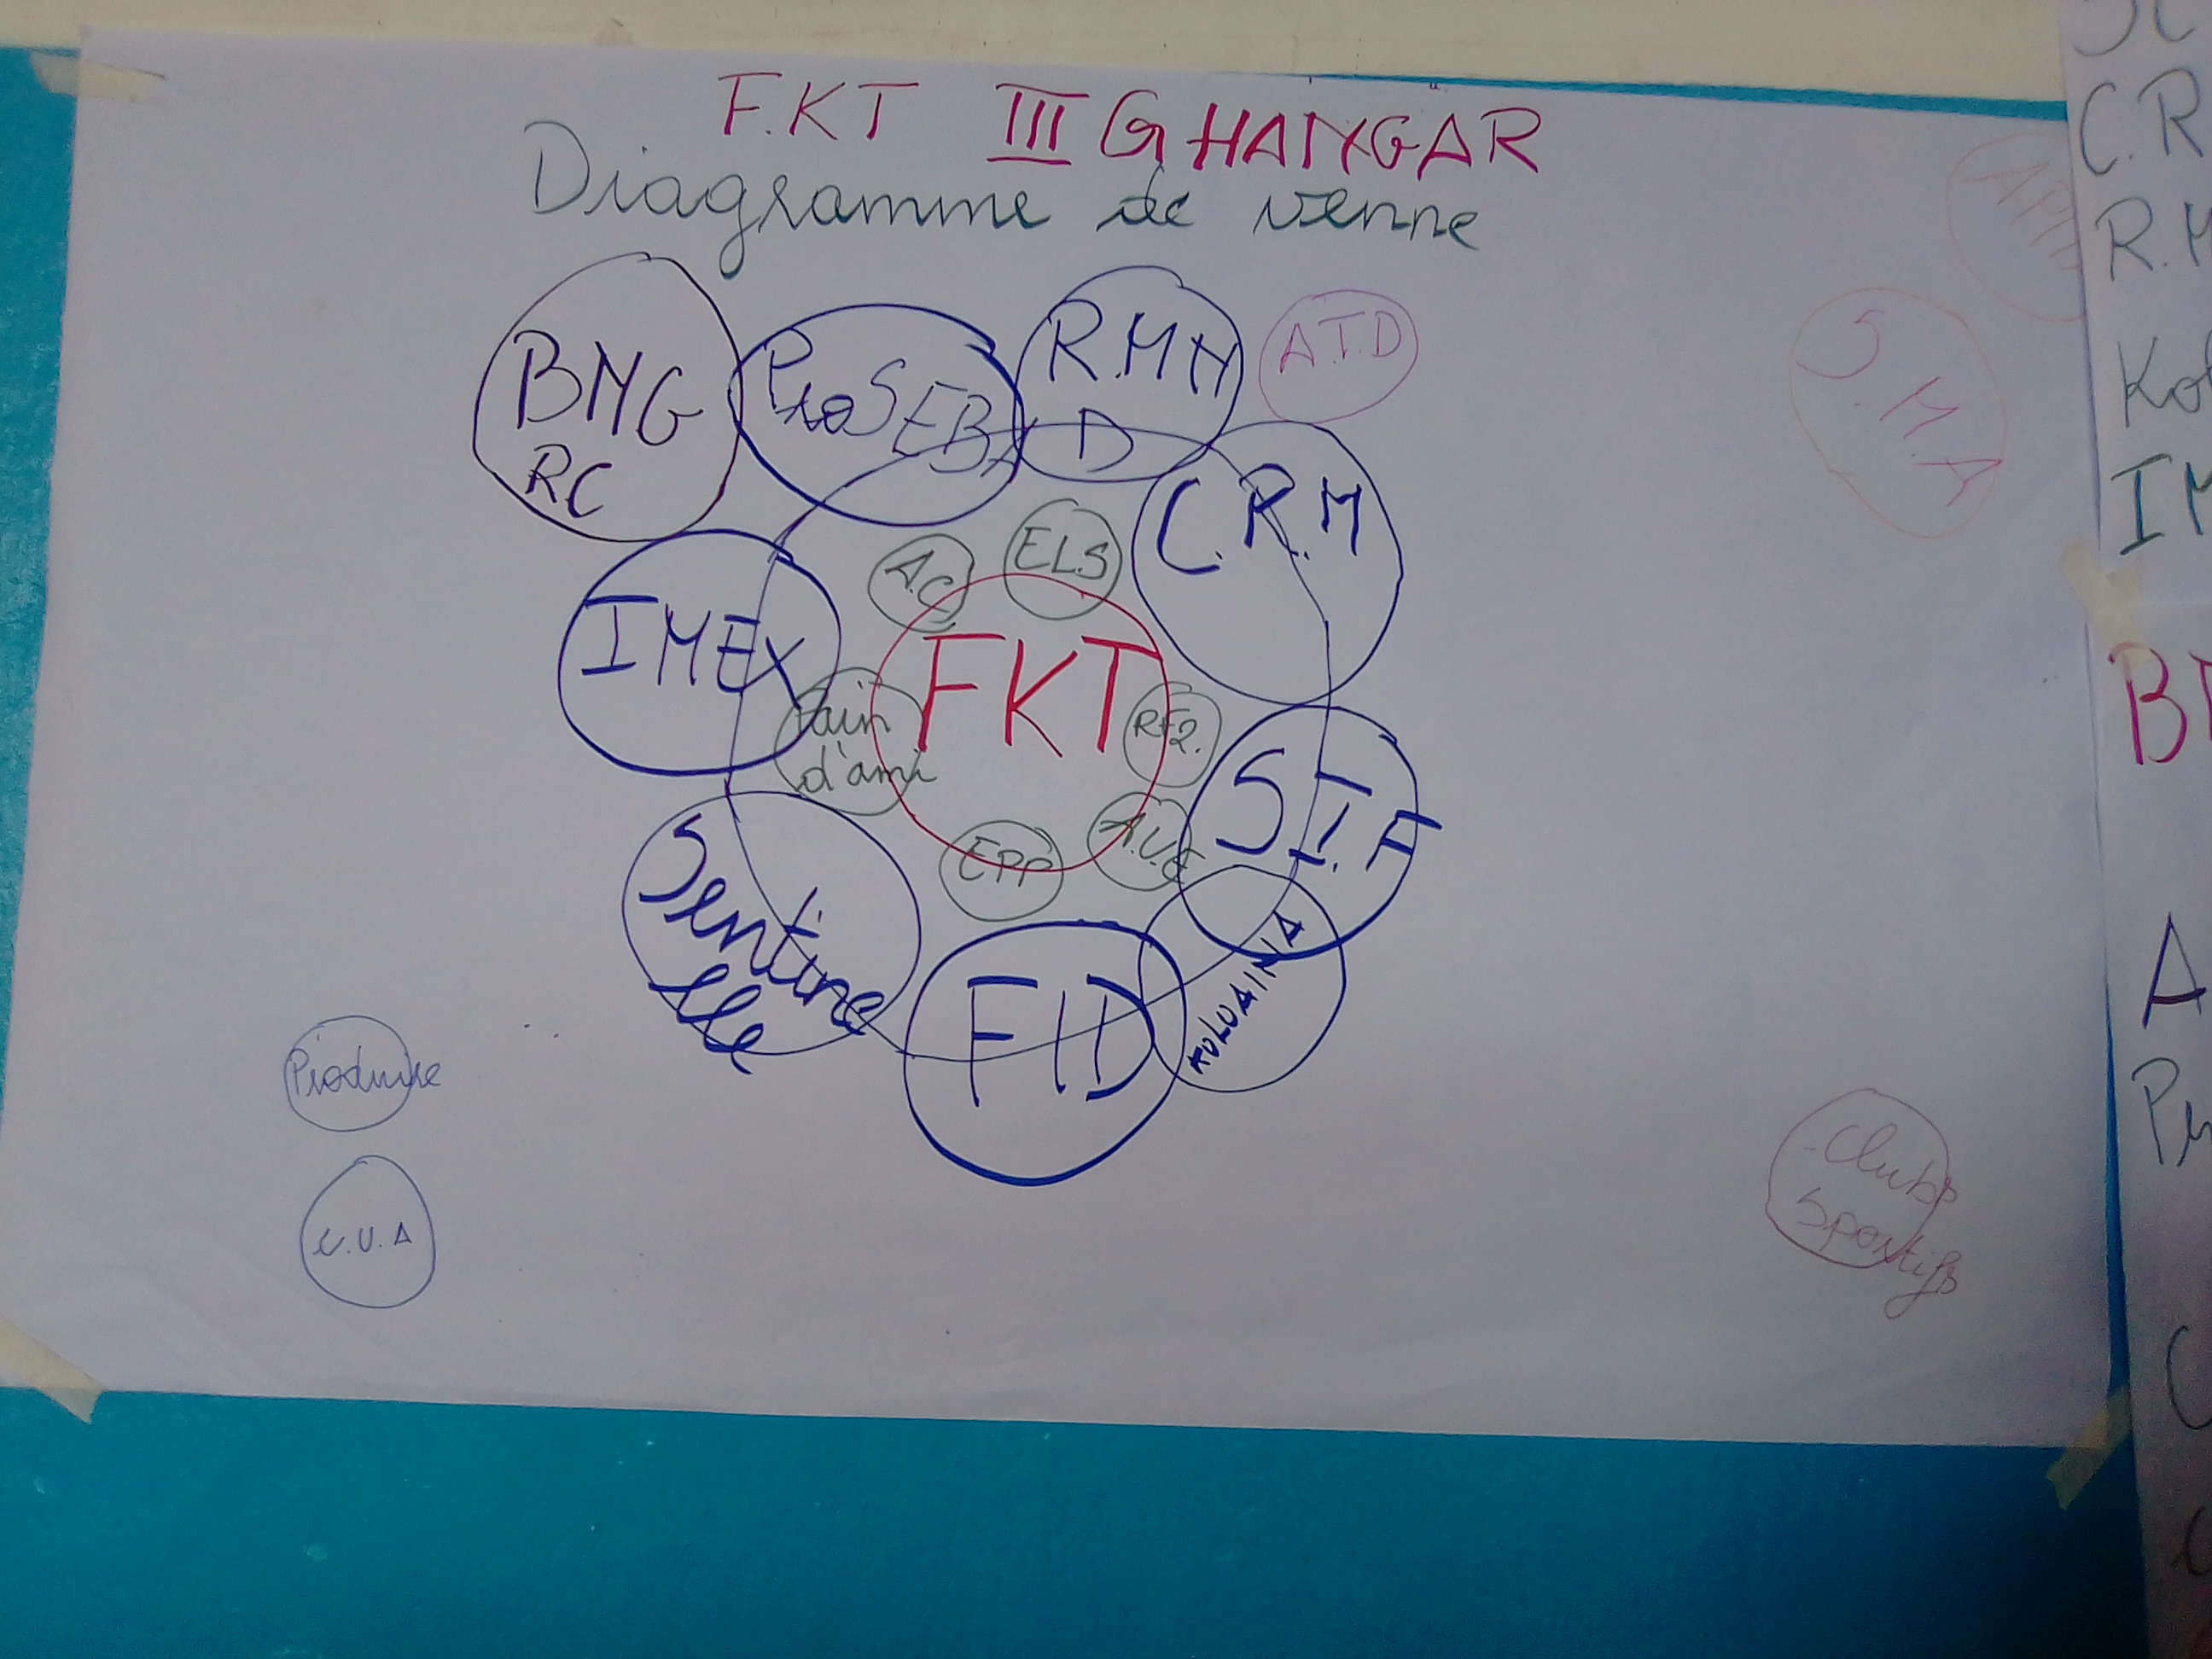 F.KT III G HANGAR
Diagramme de venne
BMG
RC
ProSEBA
R.M H
D
A.T.D
C.R.M
S.M.A
A.C
ELS
IMEX
FKT
Pain
d'ami
RF2.
S I.F
EPP
A.U.E
Sentine
lle
FID
KOLOAINA
Produire
C.U.A
Clubs
Sportifs
C.R
R.M
Ko
IM
B
A
P